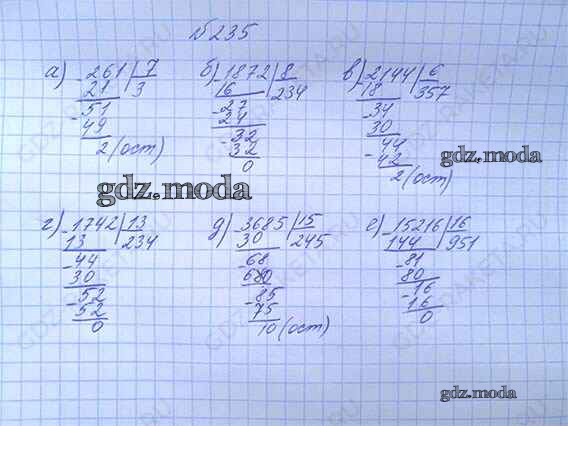 №235
а) -261 | 7 б) -1872 | 8 в) -2144 | 6
21 3 16 234 18 357
-51 -27 -34
49 24 30
2 (ост) -32 -44
32 42
0 2 (ост)
gdz.moda
gdz.moda
г) -1742 | 13 д) -3685 | 15 е) -15216 | 16
13 234 30 245 144 951
-44 68 -81
30 680 80
-52 -85 -16
52 75 16
0 10 (ост) 0
gdz.moda